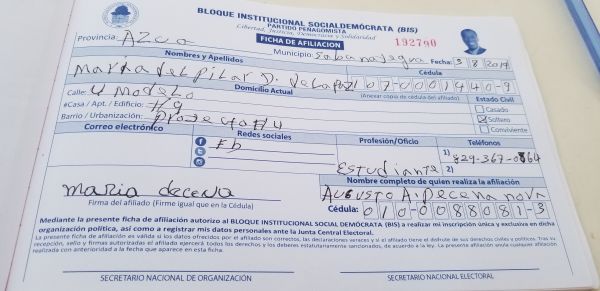 BLOQUE INSTITUCIONAL SOCIALDEMÓCRATA (BIS)
PARTIDO PENAGOMISTA
Libertad, Justicia, Democracia y Solidaridad
FICHA DE AFILIACION
192790
Provincia: Azua Municipio: Sabana Yegua Fecha: 3/8/2019
Nombres y Apellidos Cédula
Maria del Pilar D. de la Paz 107-0001940-9
Domicilio Actual (Anexar copia de cédula del afiliado) Estado Civil
Calle: 4 Modelo
Casado
#Casa / Apt. / Edificio: #9
Soltero
Barrio / Urbanización: Proyecto #4
Conviviente
Correo electrónico Redes sociales Profesión/Oficio Teléfonos
Fb
1) 829-367-0864
Estudiante 2)
Nombre completo de quien realiza la afiliación
Maria decena Augusto A. Decena nova
Firma del afiliado (Firme igual que en la Cédula) Cédula: 010-0088081-3
Mediante la presente ficha de afiliación autorizo al BLOQUE INSTITUCIONAL SOCIALDEMÓCRATA (BIS) a realizar mi inscripción única y exclusiva en dicha
organización política, así como a registrar mis datos personales ante la Junta Central Electoral.
La presente ficha de afiliación es válida si los datos ofrecidos por el afiliado son correctos, las declaraciones veraces y si el afiliado tiene el disfrute de sus derechos civiles y políticos. Tras su
recepción, sello y firmas autorizadas el afiliado ejercerá todos los derechos y los deberes estatutariamente sancionados, de acuerdo a la ley. La presente afiliación anula cualquier afiliación
realizada con anterioridad a la fecha que aparece en esta ficha.
SECRETARIO NACIONAL DE ORGANIZACIÓN SECRETARIO NACIONAL ELECTORAL